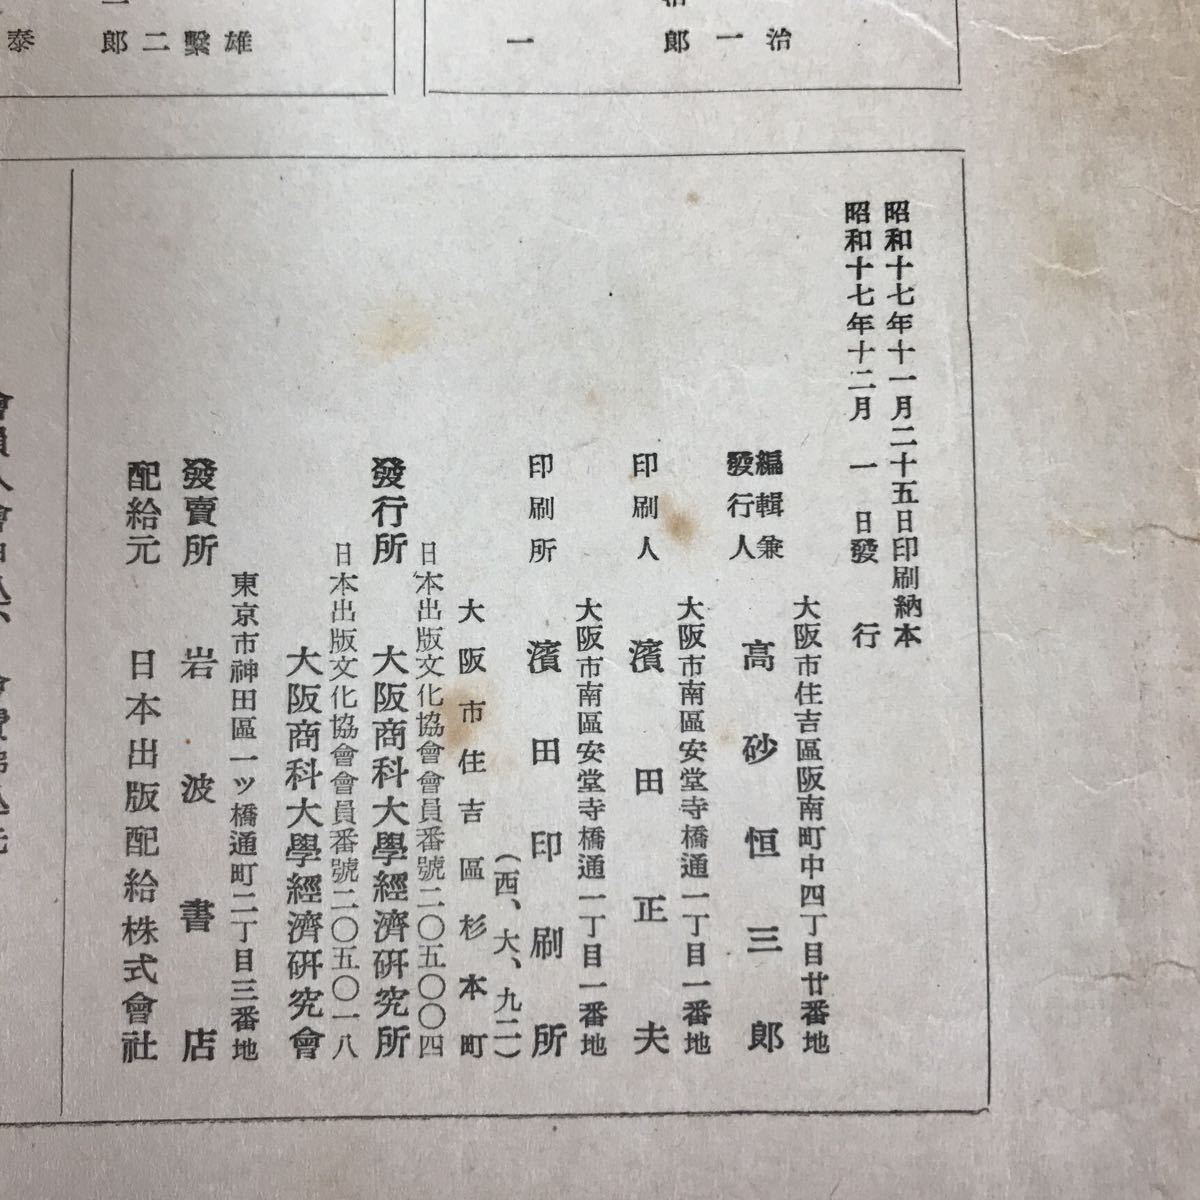 治
一
治郎
一
雄
繫
二
郎
泰
昭和十七年十一月二十五日印刷納本
昭和十七年十二月一日發行
大阪市住吉區阪南町中四丁目廿番地
編輯兼
發行人
高砂恒三郎
大阪市南區安堂寺橋通一丁目一番地
印刷人 濱田正夫
大阪市南區安堂寺橋通一丁目一番地
印刷所 濱田印刷所
(西、大、九二)
大阪市住吉區杉本町
日本出版文化協會會員番號二〇五〇〇四
發行所 大阪商科大學經濟硏究所
日本出版文化協會會員番號二〇五〇一八
大阪商科大學經濟硏究會
東京市神田區一ツ橋通町二丁目三番地
發賣所 岩波書店
配給元 日本出版配給株式會社